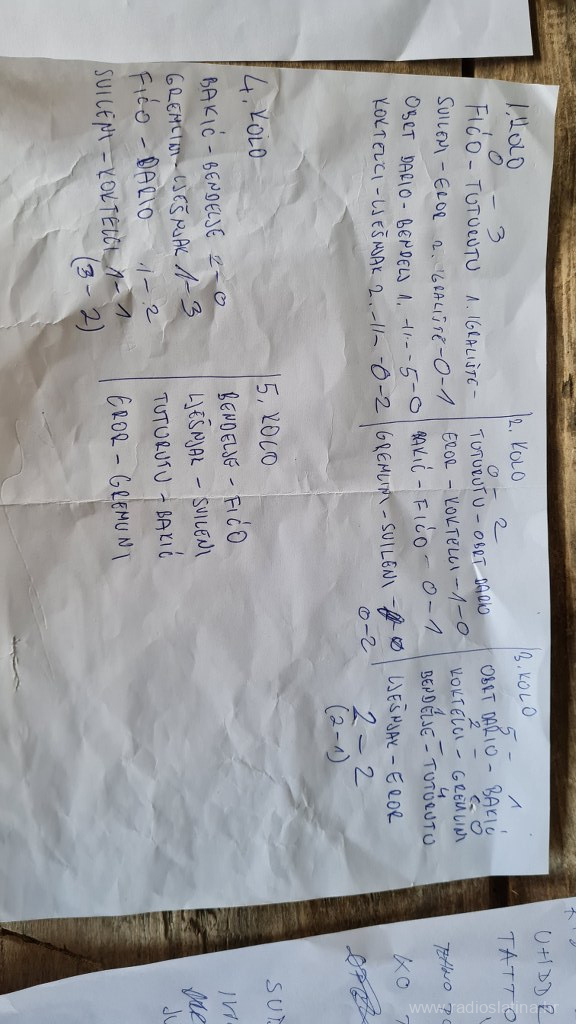 1. KOLO
0 - 3
FIĆO - TUTURUTU 1. IGRALIŠTE -
SUILENI - EROR 2. IGRALIŠTE - 0-1
OBRT DARIO - BENDELJE 1. -II- - 5-0
KOKTELCI - LJEŠNJAK 2. -II- - 0-2
2. KOLO
TUTURUTU - OBRT DARIO
0 - 2
EROR - KOKTELCI - 1-0
BAKIĆ - FIĆO - 0-1
GREMLINI - SUILENI -
0-2
3. KOLO
OBRT DARIO - BAKIĆ
5 - 1
KOKTELCI - GREMLINI
2 - 0
BENDELJE - TUTURUTU
1 - 4
LJEŠNJAK - EROR
2 - 2
(2-1)
4. KOLO
BAKIĆ - BENDELJE 2-0
GREMLINI - LJEŠNJAK 1-3
FIĆO - DARIO 1-2
SUILENI - KOKTELCI 1-1
(3-2)
5. KOLO
BENDELJE - FIĆO
LJEŠNJAK - SUILENI
TUTURUTU - BAKIĆ
EROR - GREMLINI
TATTO
KO
www.radioslatina.hr